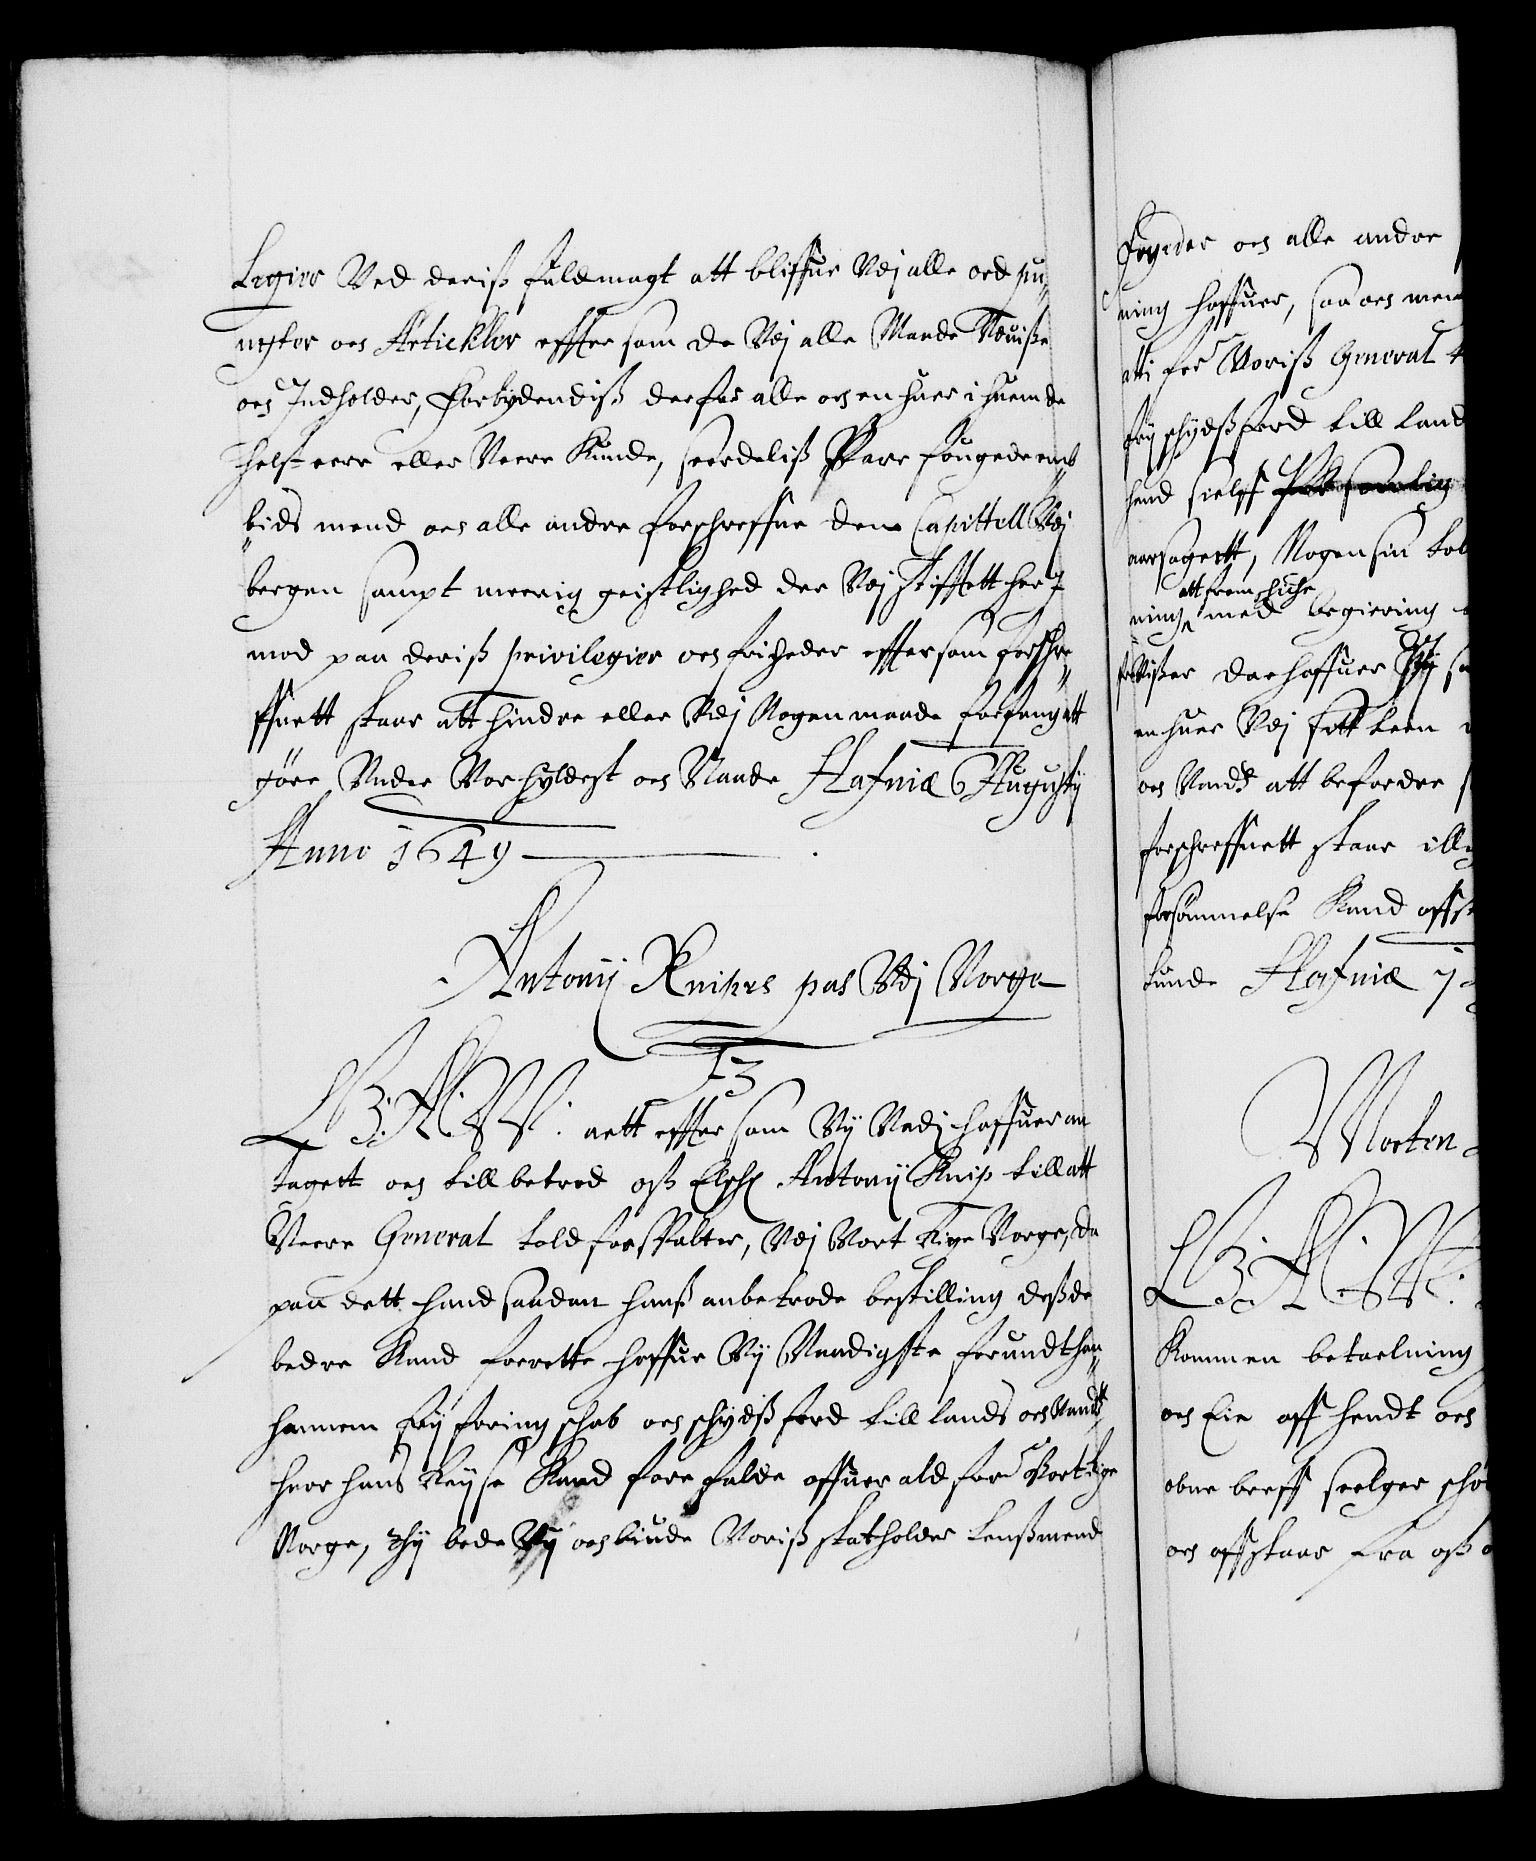 Legier Ved deriß fuldmagt att bliffue Udj alle ord pu„
ncter oc Articklor effter som de Udj alle Maade Udviße
oc Indholder, Forbydendiß derfor alle oc en huer i huem de
helst eere eller Veere Kunde, seerdeliß Vore fougeder emb
bids mend oc alle andre forschreffne dem Capittell Udj
bergen sampt meenig geistlighed der Udj stifftett her J
mod paa deriß privilegier oc friheder effter som forschre„
ffuett staar att hindre eller Udj Nogen maade forfang att
giöre Under Vor hyldest oc Naade Hafniæ 6 Augustij
Anno 1649
Antonij Knipes pas Udj Norge
13
C 3. A. W. aett effter som Vij Nadj haffuer an
tagett oc till betrod oß Elschl Antonij Knip till att
Veere General told forvalter, Udj Vort Rige Norge, da
paa dett hand saadan hanß anbetrode bestilling deß de
bedre Kand forrette haffue Vij Naadigste forundt han„
hannem frij foring schab oc schydß ferd till lands oc Vands
huor hans Reyse Kand fore falde offuer ald for Vort Rige
Norge, thj bede Vij oc biude Voriß statholder Lenßmend
Fogeder oc alle andre
ning haffuer, saa oc men
atti for Voriß General
frij schydß ferd till land
hand sielff
aarsagett, Nogen sin
att fremschicke
ning med begiering
Vißer der haffuer Vij
en huer Udj sitt Leen
oc Vands att befordre
forschreffuett staar
forsömmelse Kand
kunde Hafniæ 7
Morten
C 3. A. W.
Kommen betaelning
oc Eie aff hendt oc
obne breff seelger
oc affstaar fra oß